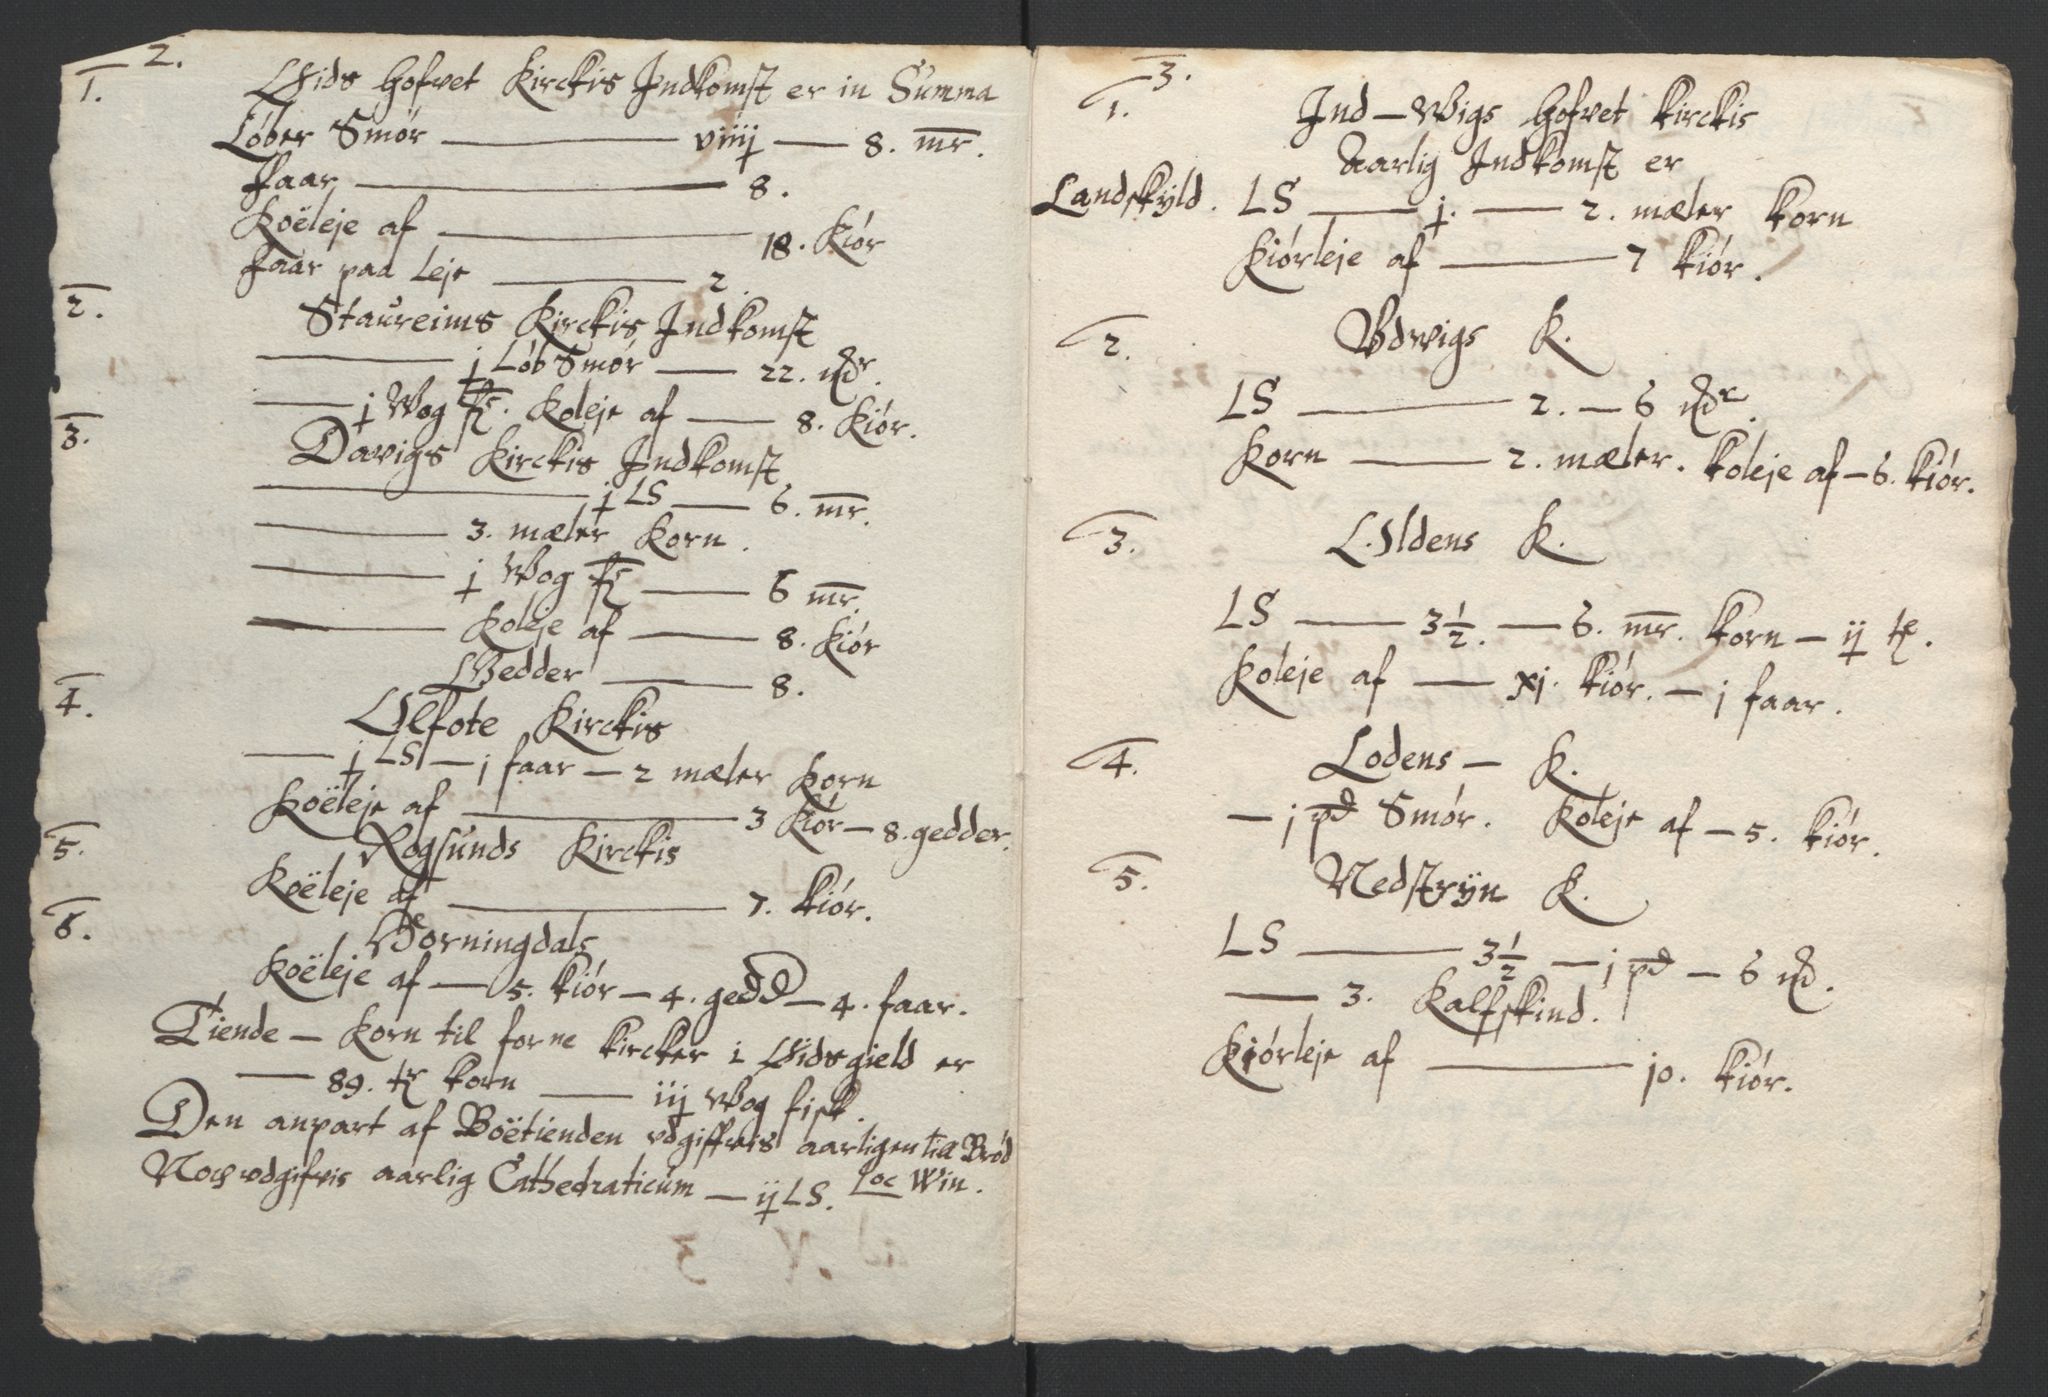 2.
1.
Eids hofvet Kirckis Indkomst er in Summa
Løber Smør — viiij — 8. mr.
Faar — 8.
Koëleje af — 18. Kiør
Faar paa Leje — 2.
2.
Staureims Kirckis Indkomst
— j Løb Smør — 22. mr.
— j Wog fs. Koleje af — 8. Kiør.
3.
Davigs Kirckis Indkomst
— j LS — 6. mr.
— 3. mæler Korn.
— j Wog fs — 6 mr.
— Koleje af — 8. Kiør
Bedder — 8.
4.
Olfote Kirckis
— j LS — j faar — 2 mæler Korn
Koëleje af — 3 Kiør — 8. gedder.
5.
Rogsunds Kirckis
Koëleje af — 7. kiør.
6.
Horningdals
Koëleje af — 5. kiør — 4. gedd — 4. faar.
Tiende — Korn til forne kircker i Eidsgield er
— 89. tr korn — iij Wog fisk.
Den anpart af Boëtienden vdgiffvis aarligen till Brød
Noch vdgifvis aarlig Cathedraticum — ij LS. Loc Win.
3.
1.
Ind — Wigs hofvet kirckis
Aarlig Indkomst er
Landskyld. LS — j. — 2. mæler korn
Kiørleje af — 7 kiør.
2.
Vdvigs K.
LS — 2. — 6 mr.
Korn — 2. mæler. koleje af — 6. kiør.
3.
Oldens K.
LS — 3½. — 6. mr. korn — ij tr.
Koleje af — xj. kiør. — j faar.
4.
Lodens — K.
— j pd Smør. Koleje af — 5. kiør.
5.
Nedstryn K.
LS — 3½ — j pd — 6 mr.
— 3. Kalfskind.
Kiørleje af — 10. kiør.